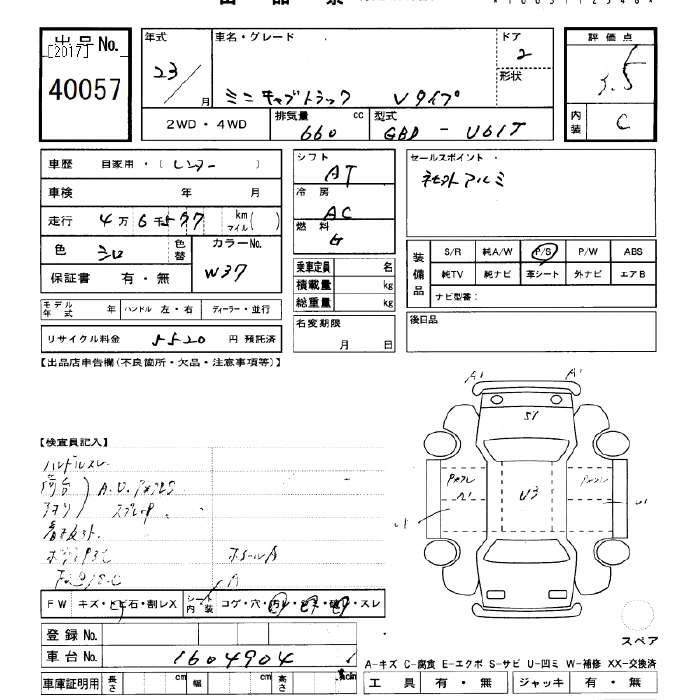 出品票
出品No.
[2017]
40057
年式
23/
月
車名・グレード
ミニキャブトラック Vタイプ
ドア
2
形状
2WD・4WD
排気量 cc
660
型式
GBD-U61T
評価点
3.5
内装
C
車歴 自家用・(レンター)
車検 年 月
走行 4万6千577 km マイル( )
色 シロ
色替
カラーNo.
W37
保証書 有・無
モデル年式 年
ハンドル 左・右
ディーラー・並行
リサイクル料金 5520 円 預託済
シフト
AT
冷房
AC
燃料
G
乗車定員 名
積載量 kg
総重量 kg
名変期限
月 日
セールスポイント・
装備品
S/R 純A/W P/S P/W ABS
純TV 純ナビ 革シート 外ナビ エアB
ナビ型番：
後日品
【出品店申告欄(不良箇所・欠品・注意事項等)】
【検査員記入】
ハンドルスレ
荷台
アオリ
A.U.
ホールA
A
A1 A1
S1
U3
U1
FW キズ・トビ石・割レX
シート内装
コゲ・穴・汚レ・スレ
登録No.
車台No. 1604904
車庫証明用 長さ cm 幅 cm 高さ cm
スペア
A-キズ C-腐食 E-エクボ S-サビ U-凹ミ W-補修 XX-交換済
工具 有・無 ジャッキ 有・無